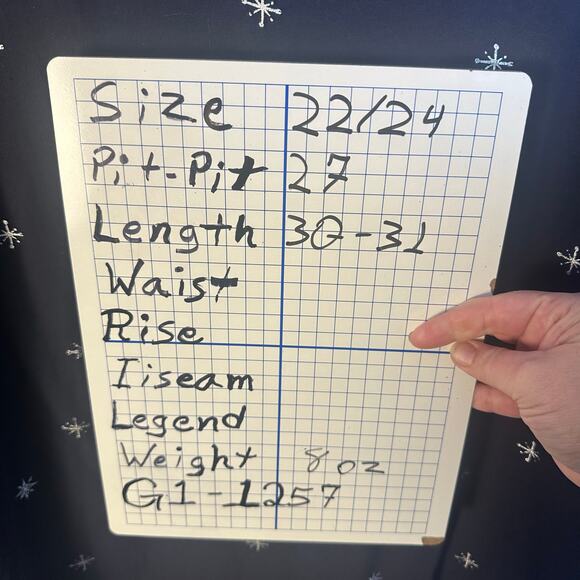 Size 22/24
Pit-Pit 27
Length 30-31
Waist
Rise
Iiseam
Legend
Weight 8 oz
G1-1257